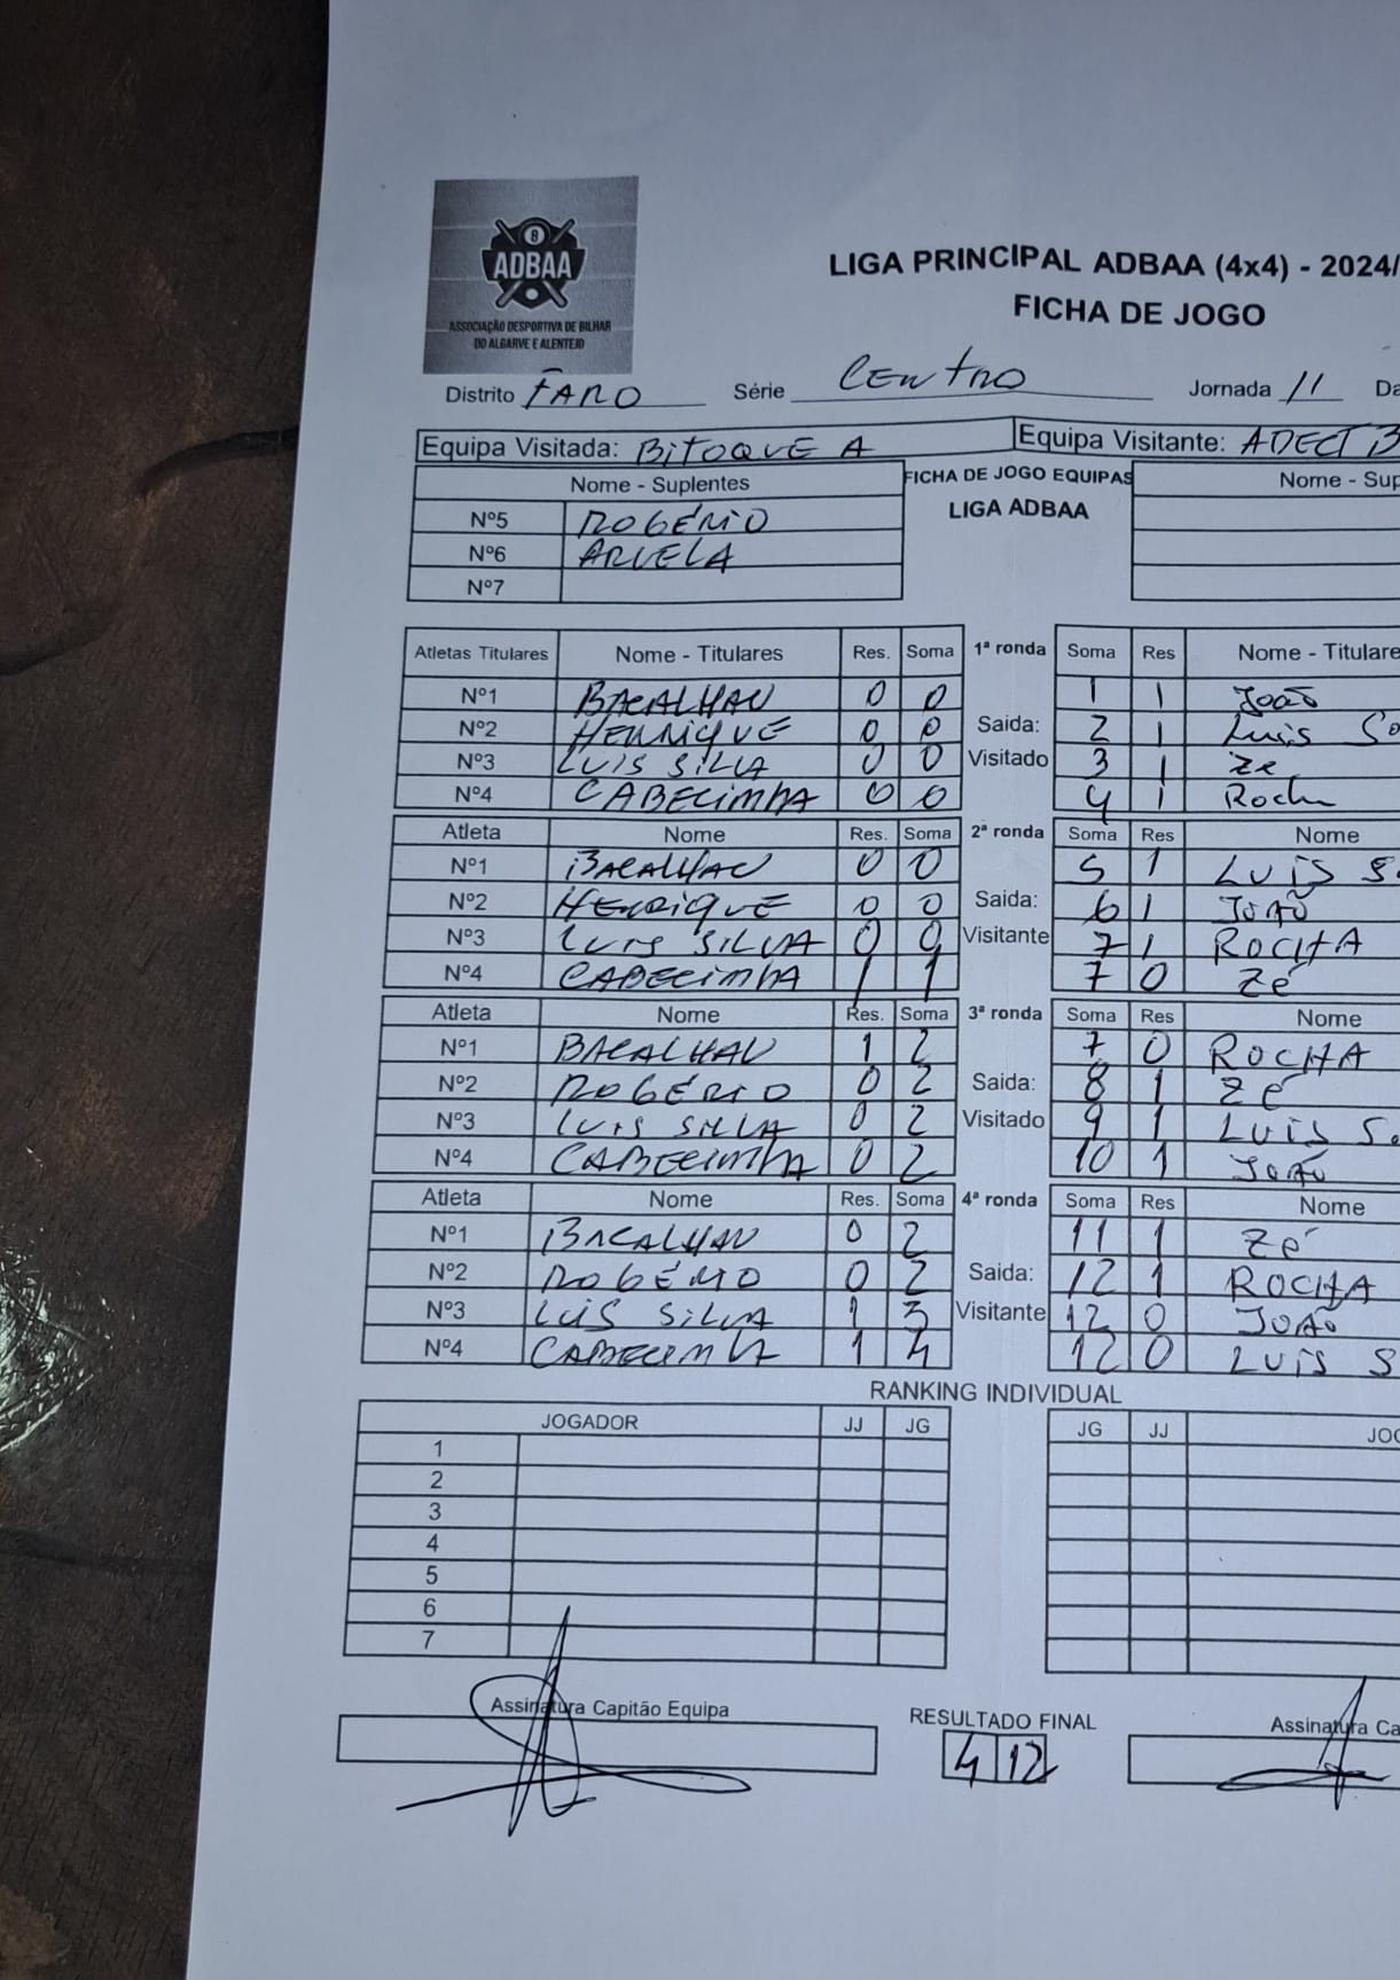 8
ADBAA
ASSOCIAÇÃO DESPORTIVA DE BILHAR
DO ALGARVE E ALENTEJO
LIGA PRINCIPAL ADBAA (4x4) - 2024/
FICHA DE JOGO
Distrito FARO Série Centro Jornada 11 Da
Equipa Visitada: BITOQUE A Equipa Visitante: ADECT B
Nome - Suplentes FICHA DE JOGO EQUIPAS Nome - Sup
LIGA ADBAA
Nº5 ROGÉRIO
Nº6 ARVELA
Nº7
Atletas Titulares Nome - Titulares Res. Soma 1ª ronda Soma Res Nome - Titulare
Nº1 BACALHAU 0 0 1 1 João
Nº2 HENRIQUE 0 0 Saida: 2 1 Luis So
Nº3 LUIS SILVA 0 0 Visitado 3 1 Ze
Nº4 CABECINHA 0 0 4 1 Rocha
Atleta Nome Res. Soma 2ª ronda Soma Res Nome
Nº1 BACALHAU 0 0 5 1 LUIS S
Nº2 HENRIQUE 0 0 Saida: 6 1 JOÃO
Nº3 LUIS SILVA 0 0 Visitante 7 1 ROCHA
Nº4 CABECINHA 1 1 7 0 Zé
Atleta Nome Res. Soma 3ª ronda Soma Res Nome
Nº1 BACALHAU 1 2 7 0 ROCHA
Nº2 ROGÉRIO 0 2 Saida: 8 1 Zé
Nº3 LUIS SILVA 0 2 Visitado 9 1 LUIS So
Nº4 CABECINHA 0 2 10 1 JOÃO
Atleta Nome Res. Soma 4ª ronda Soma Res Nome
Nº1 BACALHAU 0 2 11 1 Zé
Nº2 ROGÉRIO 0 2 Saida: 12 1 ROCHA
Nº3 LUIS SILVA 1 3 Visitante 12 0 JOÃO
Nº4 CABECINHA 1 4 12 0 LUIS S
RANKING INDIVIDUAL
JOGADOR JJ JG JG JJ JOG
1
2
3
4
5
6
7
Assinatura Capitão Equipa RESULTADO FINAL Assinatura Ca
4 12